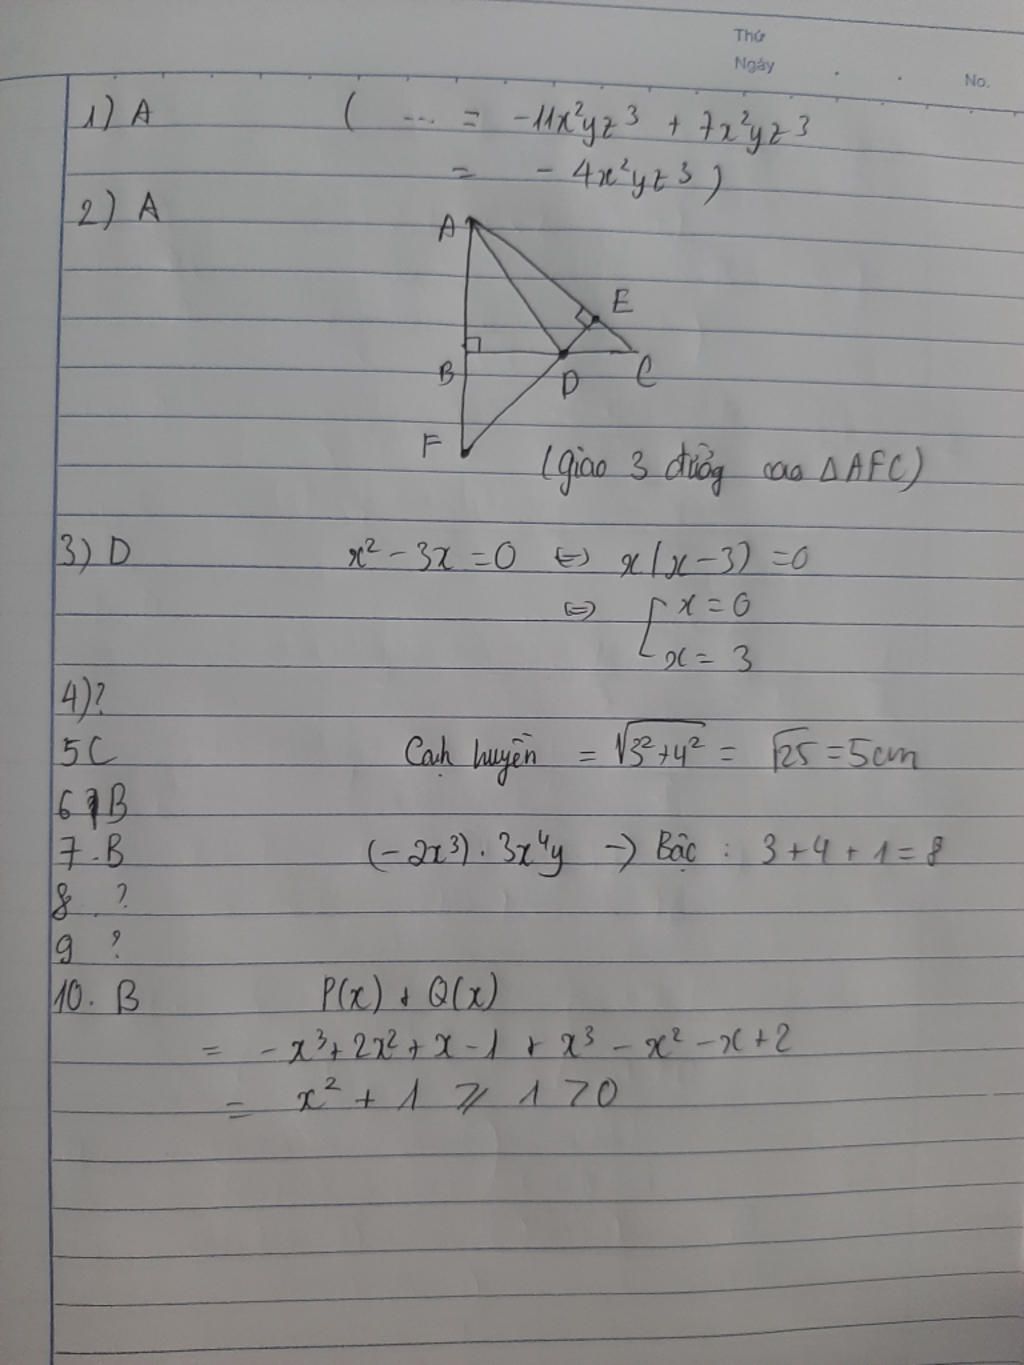 Thứ
Ngày . . No.
1) A ( ... = -11x²yz³ + 7x²yz³
= - 4x²yz³)
2) A
A
E
B
D
C
F
(Giao 3 đường cao ΔAFC)
3) D x² - 3x = 0 ⇔ x(x - 3) = 0
⇔ [ x = 0
x = 3
4)?
5C Cạnh huyền = √3²+4² = √25 = 5cm
6 B
7.B (-2x³) . 3x⁴y → Bậc : 3 + 4 + 1 = 8
8. ?
9 ?
10. B P(x) + Q(x)
= -x³ + 2x² + x - 1 + x³ - x² - x + 2
= x² + 1 ⩾ 1 > 0